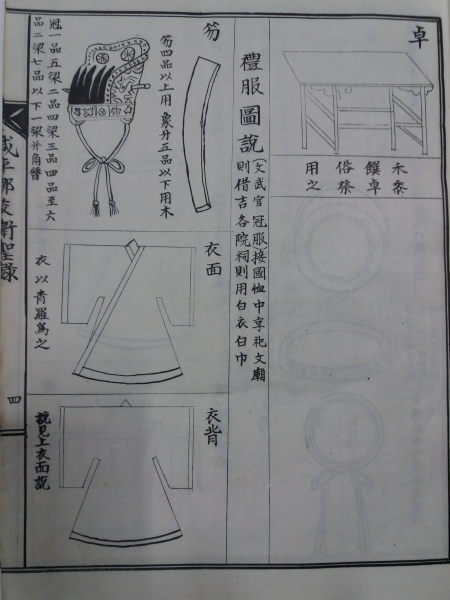 卓
饌卓
俗祭
用之
禮服圖說
(文武官冠服)接國恤中享祀文廟
則借吉各院祠則用白衣白巾
笏
笏四品以上用象牙五品以下用木
冠一品五梁二品四梁三品四品至六
品二梁七品以下一梁并角簪
衣面
衣以青羅爲之
衣背
說見上衣面說
衛聖錄
四